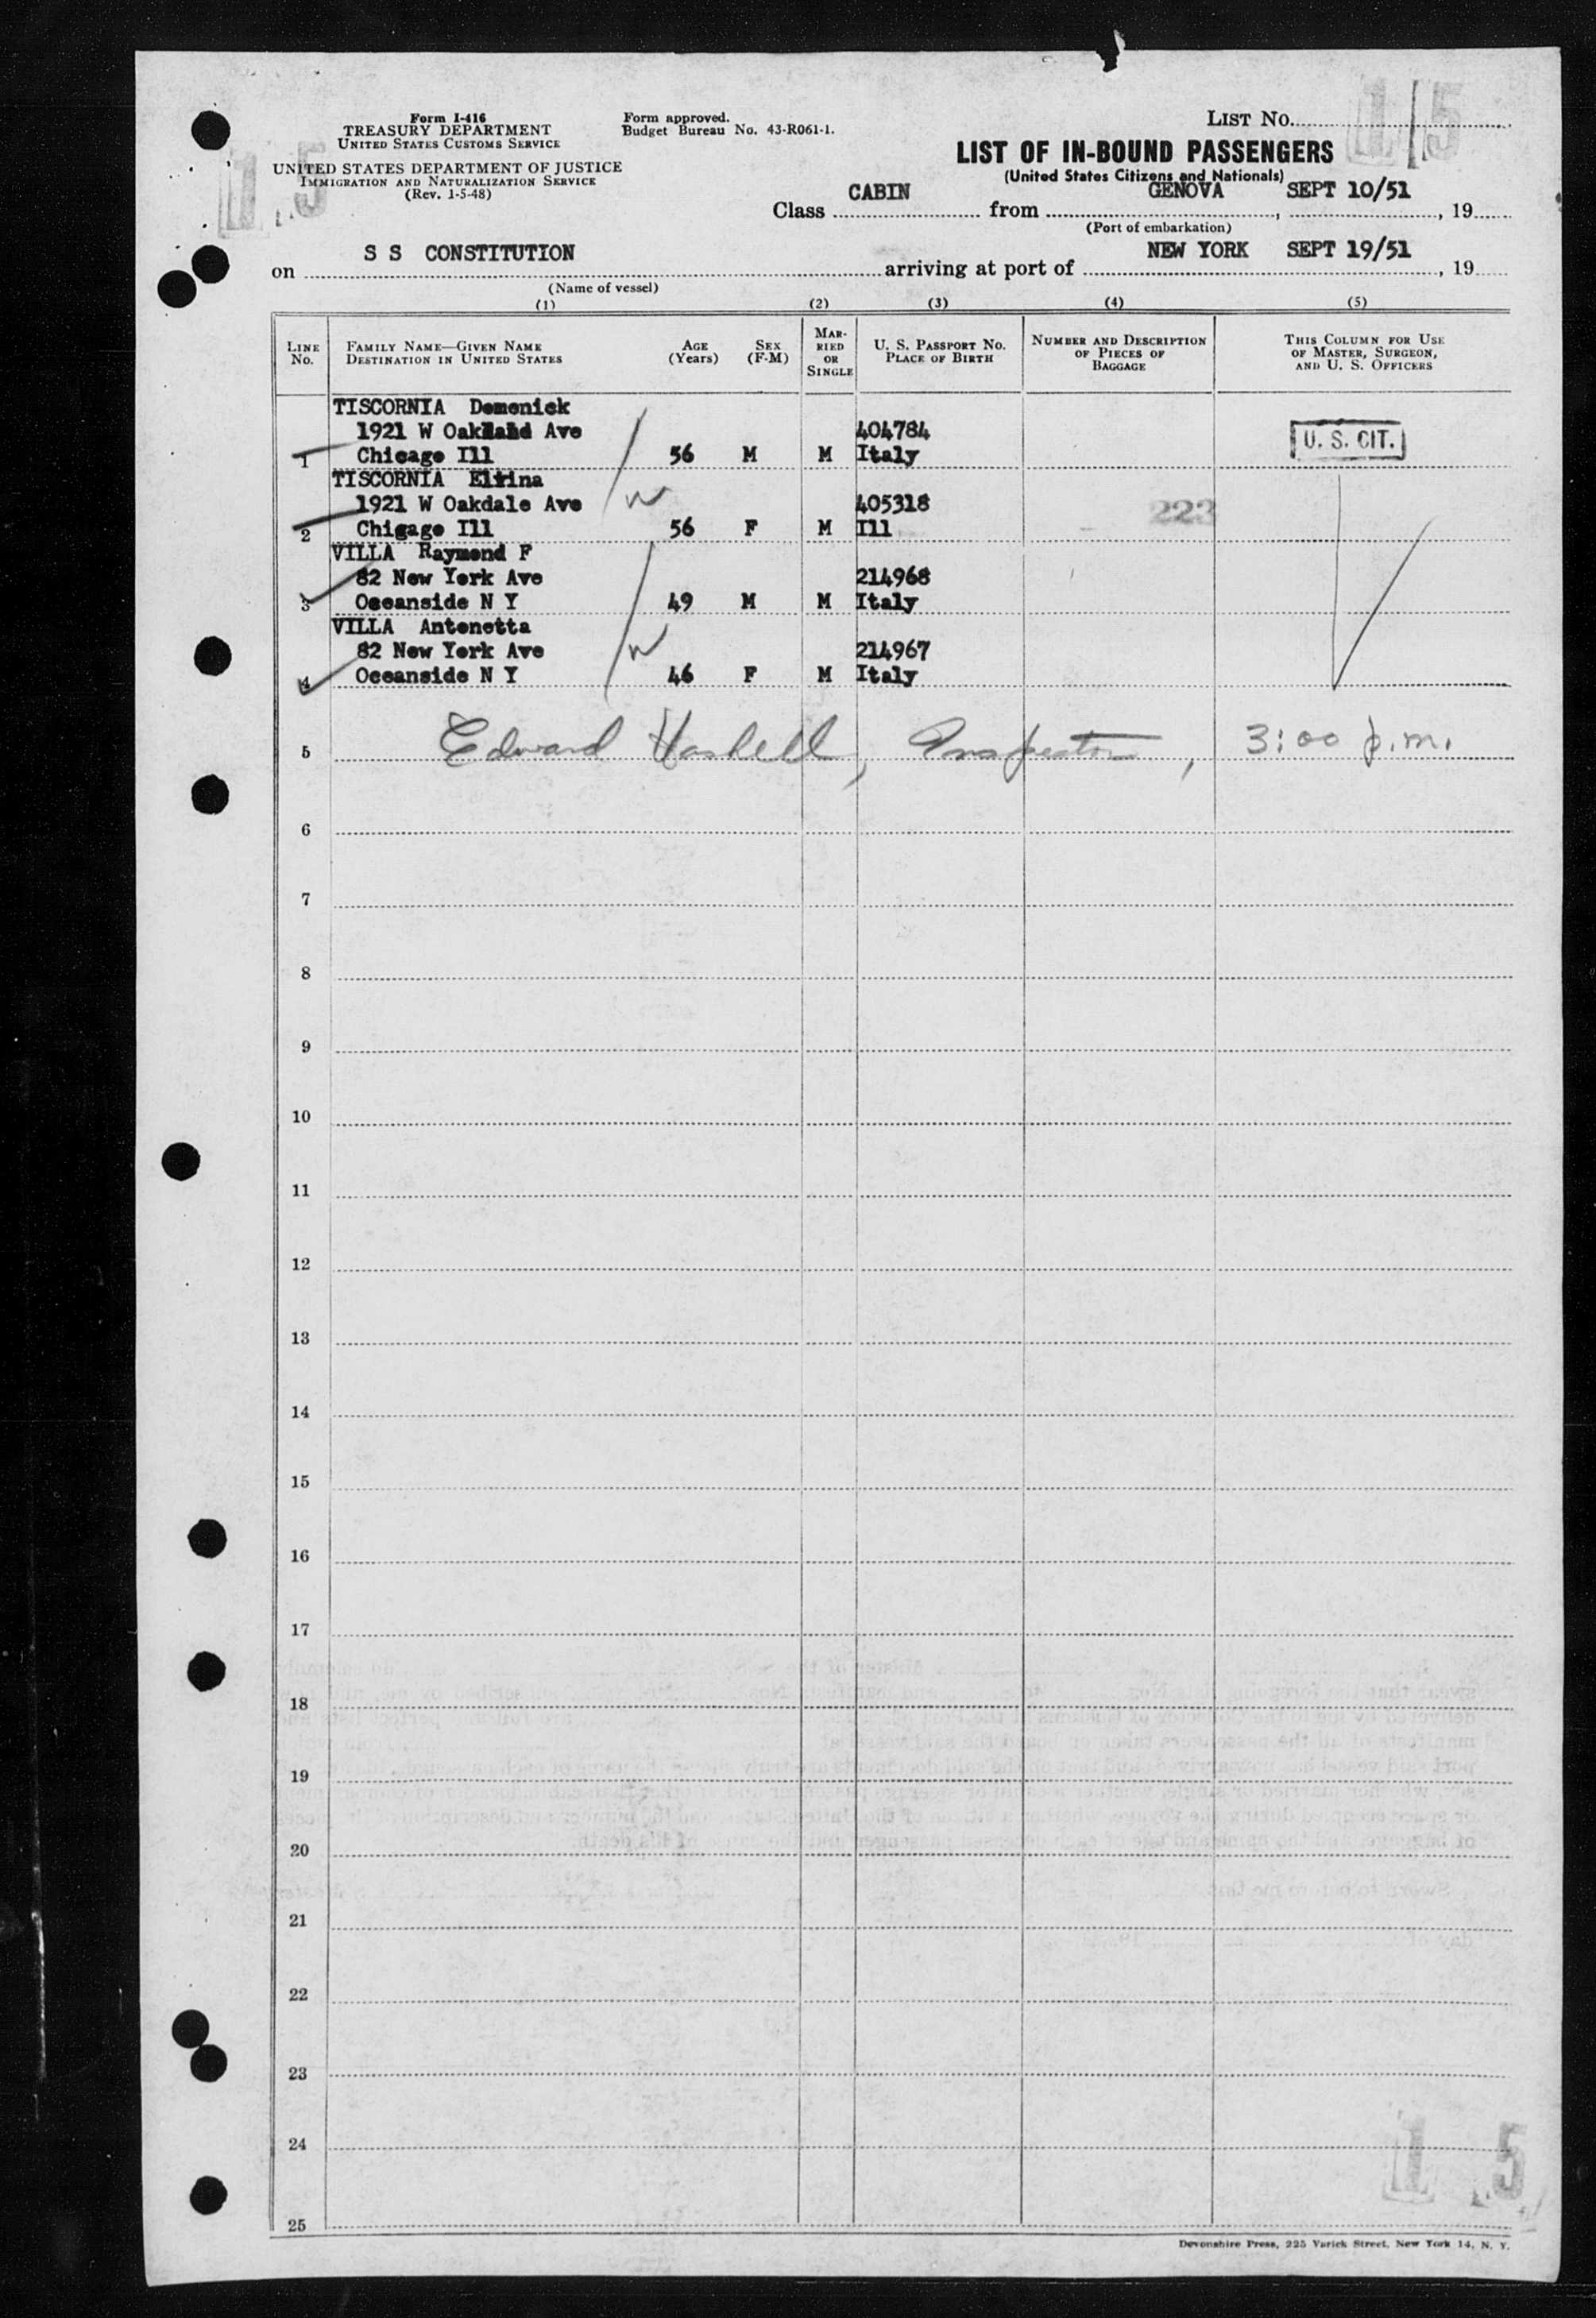 Form I-416
TREASURY DEPARTMENT
UNITED STATES CUSTOMS SERVICE
UNITED STATES DEPARTMENT OF JUSTICE
IMMIGRATION AND NATURALIZATION SERVICE
(Rev. 1-5-48)
Form approved.
Budget Bureau No. 43-R061-1.
LIST NO. 15
15
LIST OF IN-BOUND PASSENGERS
(United States Citizens and Nationals)
Class CABIN from GENOVA, SEPT 10/51, 19
(Port of embarkation)
on S S CONSTITUTION arriving at port of NEW YORK SEPT 19/51, 19
(Name of vessel)
(1) (2) (3) (4) (5)
LINE NO. FAMILY NAME—GIVEN NAME DESTINATION IN UNITED STATES AGE (Years) SEX (F-M) MARRIED OR SINGLE U. S. PASSPORT NO. PLACE OF BIRTH NUMBER AND DESCRIPTION OF PIECES OF BAGGAGE THIS COLUMN FOR USE OF MASTER, SURGEON, AND U. S. OFFICERS
TISCORNIA Domenick
1921 W Oakland Ave 404784 U. S. CIT.
1 Chicago Ill 56 M M Italy
TISCORNIA
1921 W Oakdale Ave W 405318 223
2 Chigago Ill 56 F M Ill
VILLA Raymond F
82 New York Ave 214968
3 Oceanside N Y 49 M M Italy
VILLA Antonetta
82 New York Ave W 214967
4 Oceanside N Y 46 F M Italy
5 Edward Haskell, Inspector, 3:00 p.m.
6
7
8
9
10
11
12
13
14
15
16
17
18
19
20
21
22
23
24
25
15
Devonshire Press, 225 Varick Street, New York 14, N. Y.